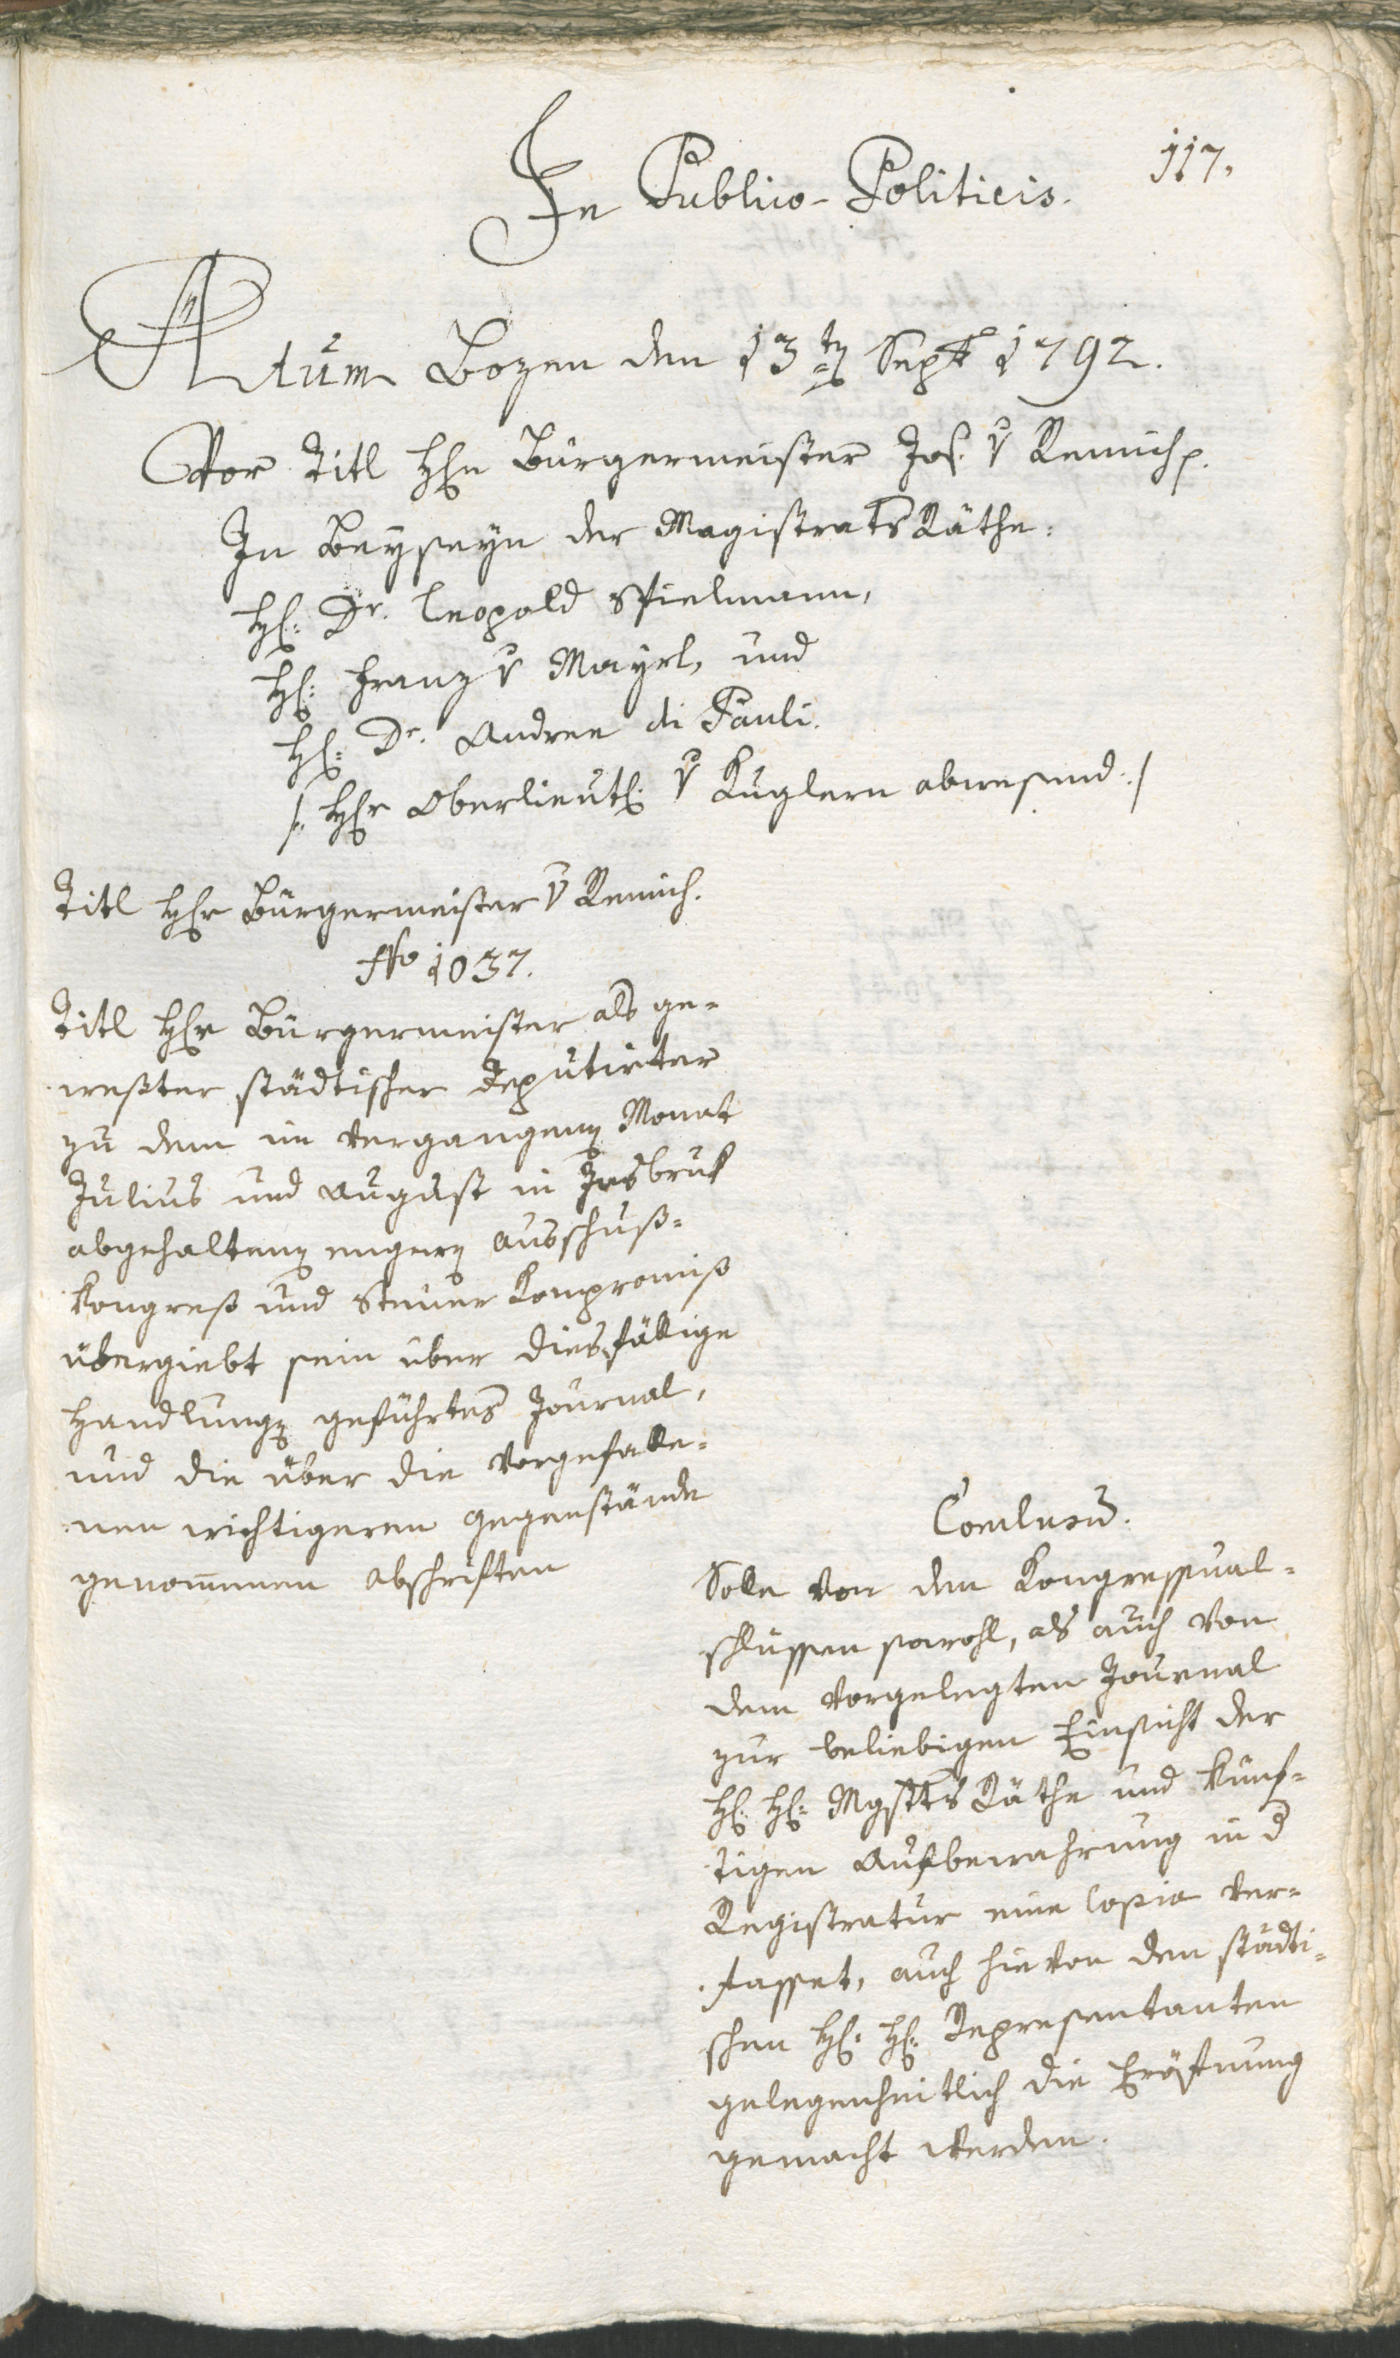 117.
In Publico-Politicis.
Actum Bozen den 13ten Septr 1792.
Vor Titl Hln Bürgermeister Jos. v Remich p.
In Beyseyn der Magistrats Räthe:
H: Dr. Leopold Spielmann,
H: Franz v Mayrl, und
H: Dr. Andree di Pauli.
/: Hr Oberlieut: v Kuglern abwesend :/
Titl Hr Bürgermeister v Remich.
No 1037.
Titl Hr Bürgermeister als ge=
weßter städtischer Deputirter
zu dem im vergangenen Monat
Julius und August in Insbruk
abgehaltenen engern Ausschuß=
kongreß und Steuer Kompromiß
übergiebt sein über diesfällige
Handlungen geführtes Journal,
und die über die vorgefalle=
nen wichtigeren Gegenstände
genommenen Abschriften
Conclusum.
Solle von den Kongressual=
schlüssen sowohl, als auch von
dem vorgelegten Journal
zur beliebigen Einsicht der
H: H: Mgstts Räthe und künf=
tigen Aufbewahrung in d
Registratur eine Copia ver=
fasset, auch hievon den städti=
schen H: H: Representanten
gelegenheitlich die Eröfnung
gemacht werden.